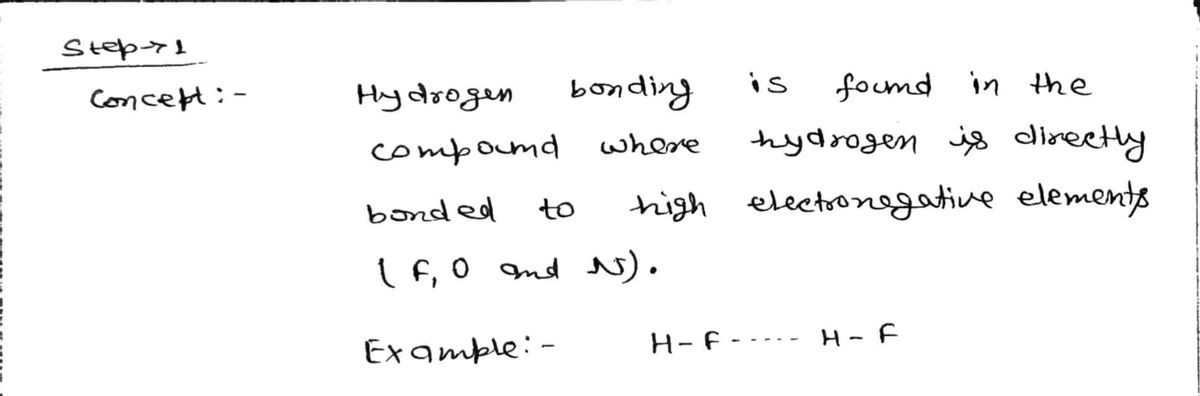 Step→1
Concept:- Hydrogen bonding is found in the
compound where hydrogen is directly
bonded to high electronegative elements
(F, O and N).
Example:- H-F------H-F